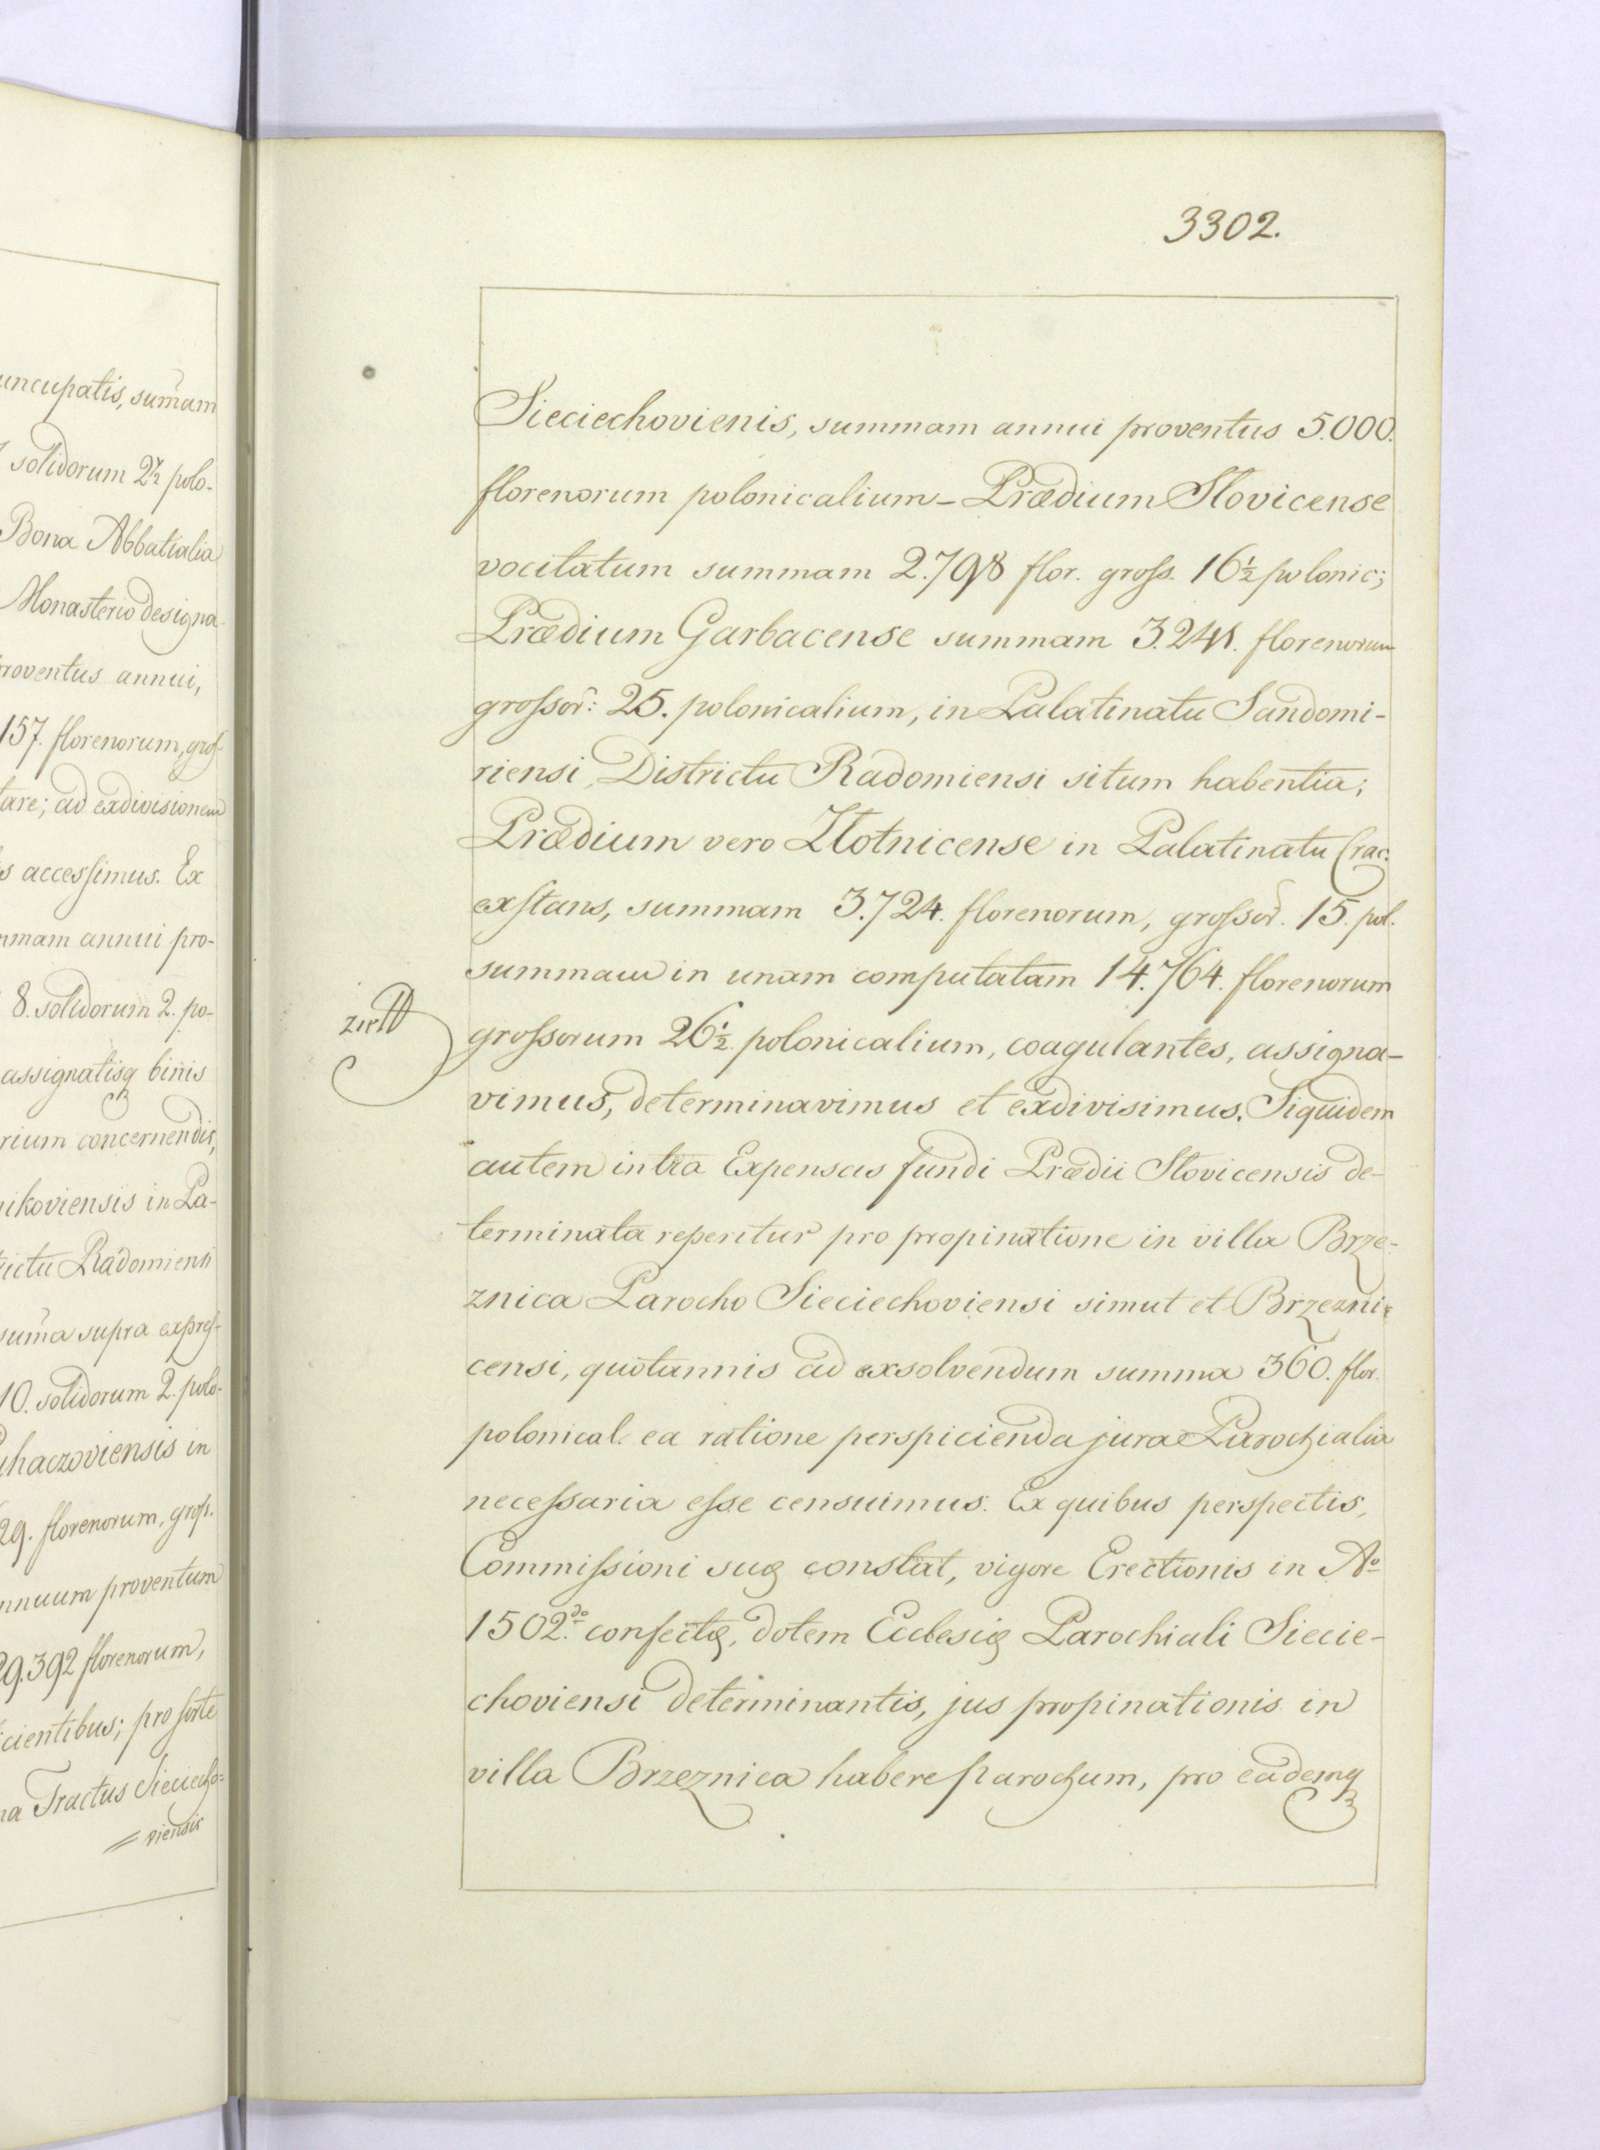 uncupatis, sum̄am
solidorum 2½ polo-
Bona Abbatialia
Monasterio designa-
roventus annui,
157. florenorum, gros-
tare; ad exdivisionem
s accessimus. Ex
mmam annui pro-
8. solidorum 2. po-
assignatisq binis
rium concernendis,
nikoviensis in Pa-
rictu Radomiensi
sum̄a supra expres-
10. solidorum 2. polo-
uhaczoviensis in
29. florenorum, gros.
nnuum proventum
29.392 florenorum,
icientibus; pro sorte
na Tractus Siecieco-
= viensis
3302.
Sieciechovienis, summam annui proventus 5.000.
florenorum polonicalium – Prædium Slovicense
vocitatum summam 2.798 flor. gross. 16½ polonic;
Prædium Garbacense summam 3.241. florenorum
grossor̄: 25. polonicalium, in Palatinatu Sandomi-
riensi, Districtu Radomiensi situm habentia;
Prædium vero Złotnicense in Palatinatu Crac:
exstans, summam 3.724. florenorum, grossor̄. 15. pol.
summam in unam computatam 14.764. florenorum
grossorum 26½ polonicalium, coagulantes, assigna-
vimus, determinavimus et exdivisimus. Siquidem
autem intra Expensas fundi Prædii Slovicensis de-
terminata reperitur pro propinatione in villa Brze-
znica Parocho Sieciechoviensi simut et Brzezni-
censi, quotannis ad exsolvendum summa 360. flor.
polonical. ea ratione perspicienda jura Parochialia
necessaria esse censuimus. Ex quibus perspectis,
Commissioni suę constat, vigore Erectionis in Aº
1502.do confectę, dotem Ecclesię Parochiali Siecie-
choviensi determinantis, jus propinationis in
villa Brzeznica habere parochum, pro eademq